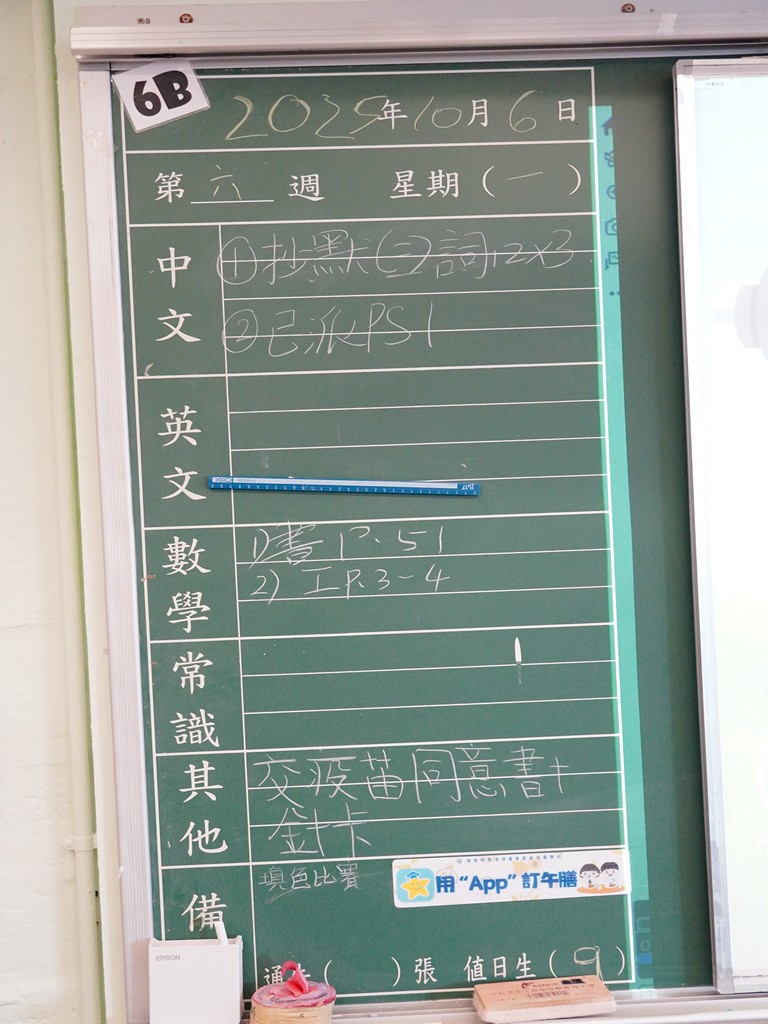 6B
2025年10月6日
第六週 星期(一)
中文
①抄默(二)詞12x3
②已派PS1
英文
數學
1)書P.51
2)工P.3-4
常識
其他
交疫苗同意書+
針卡
備
填色比賽
用“App”訂午膳
EPSON
通告( )張 值日生(9)